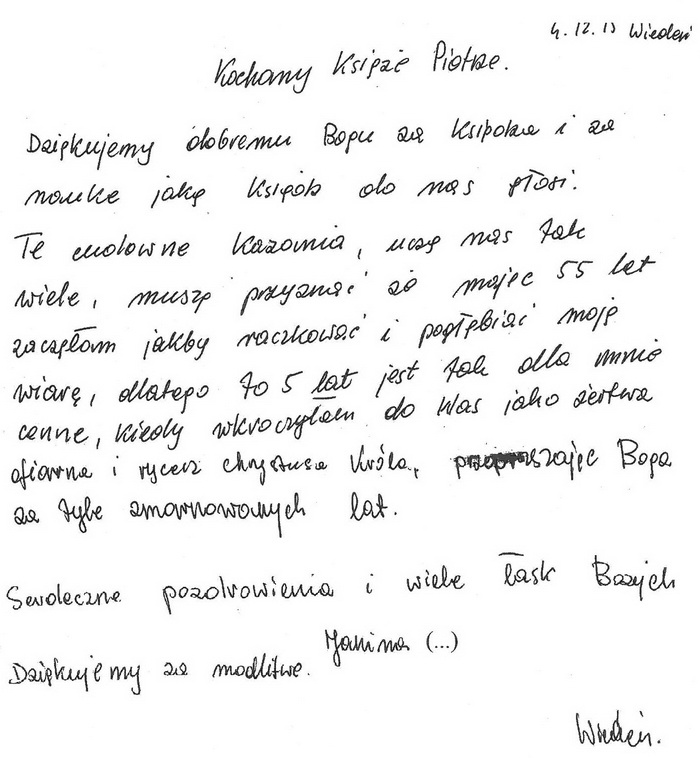 4.12.13 Wiedeń
Kochany Księże Piotrze.
Dziękujemy dobremu Bogu za Księdza i za
naukę jaką Ksiądz do nas głosi.
Te cudowne kazania, uczą nas tak
wiele, muszę przyznać że mając 55 lat
zaczęłam jakby raczkować i pogłębiać moją
wiarę, dlatego to 5 lat jest tak dla mnie
cenne, kiedy wkroczyłam do Was jako żertwa
ofiarna i rycerz Chrystusa Króla, przepraszając Boga
za tyle zmarnowanych lat.
Serdeczne pozdrowienia i wiele łask Bożych
Janina (...)
Dziękujemy za modlitwę.
Wiedeń.